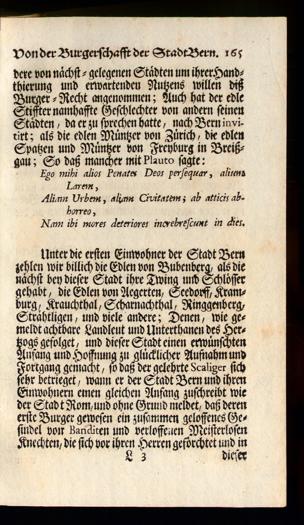 Von der Burgerschafft der Stadt Bern. 165
dere von nächst-gelegenen Städten um ihrer Hand-
thierung und erwartenden Nutzens willen diß
Burger-Recht angenommen; Auch hat der edle
Stiffter namhaffte Geschlechter von andern seinen
Städten, da er zu sprechen hatte, nach Bern invi-
tirt; als die edlen Müntzer von Zürich, die edlen
Spatzen und Müntzer von Freyburg in Breiß-
gau; So daß mancher mit Plauto sagte:
Ego mihi alios Penates Deos persequar, alium
Larem,
Aliam Urbem, aliam Civitatem; ab atticis ab-
horreo,
Nam ibi mores deteriores increbrescunt in dies.
Unter die ersten Einwohner der Stadt Bern
zehlen wir billich die Edlen von Bubenberg, als die
nächst bey dieser Stadt ihre Twing und Schlösser
gehabt, die Edlen von Aegerten, Seedorff, Kram-
burg, Krauchthal, Scharnachthal, Ringgenberg,
Sträthligen, und viele andere; Denen, wie ge-
meldt achtbare Landleut und Unterthanen des Her-
tzogs gefolget, und dieser Stadt einen erwünschten
Anfang und Hoffnung zu glücklicher Aufnahm und
Fortgang gemacht, so daß der gelehrte Scaliger sich
sehr betrieget, wann er der Stadt Bern und ihren
Einwohnern einen gleichen Anfang zuschreibt wie
der Stadt Rom, und ohne Grund meldet, daß deren
erste Burger gewesen ein zusammen geloffenes Ge-
sindel von Banditen und verloffenen Meisterlosen
Knechten, die sich vor ihren Herren geförchtet und in
L 3 dieser